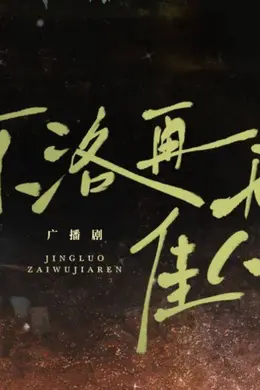 洛再
佳
广播剧
JINGLUO
ZAIWUJIAREN